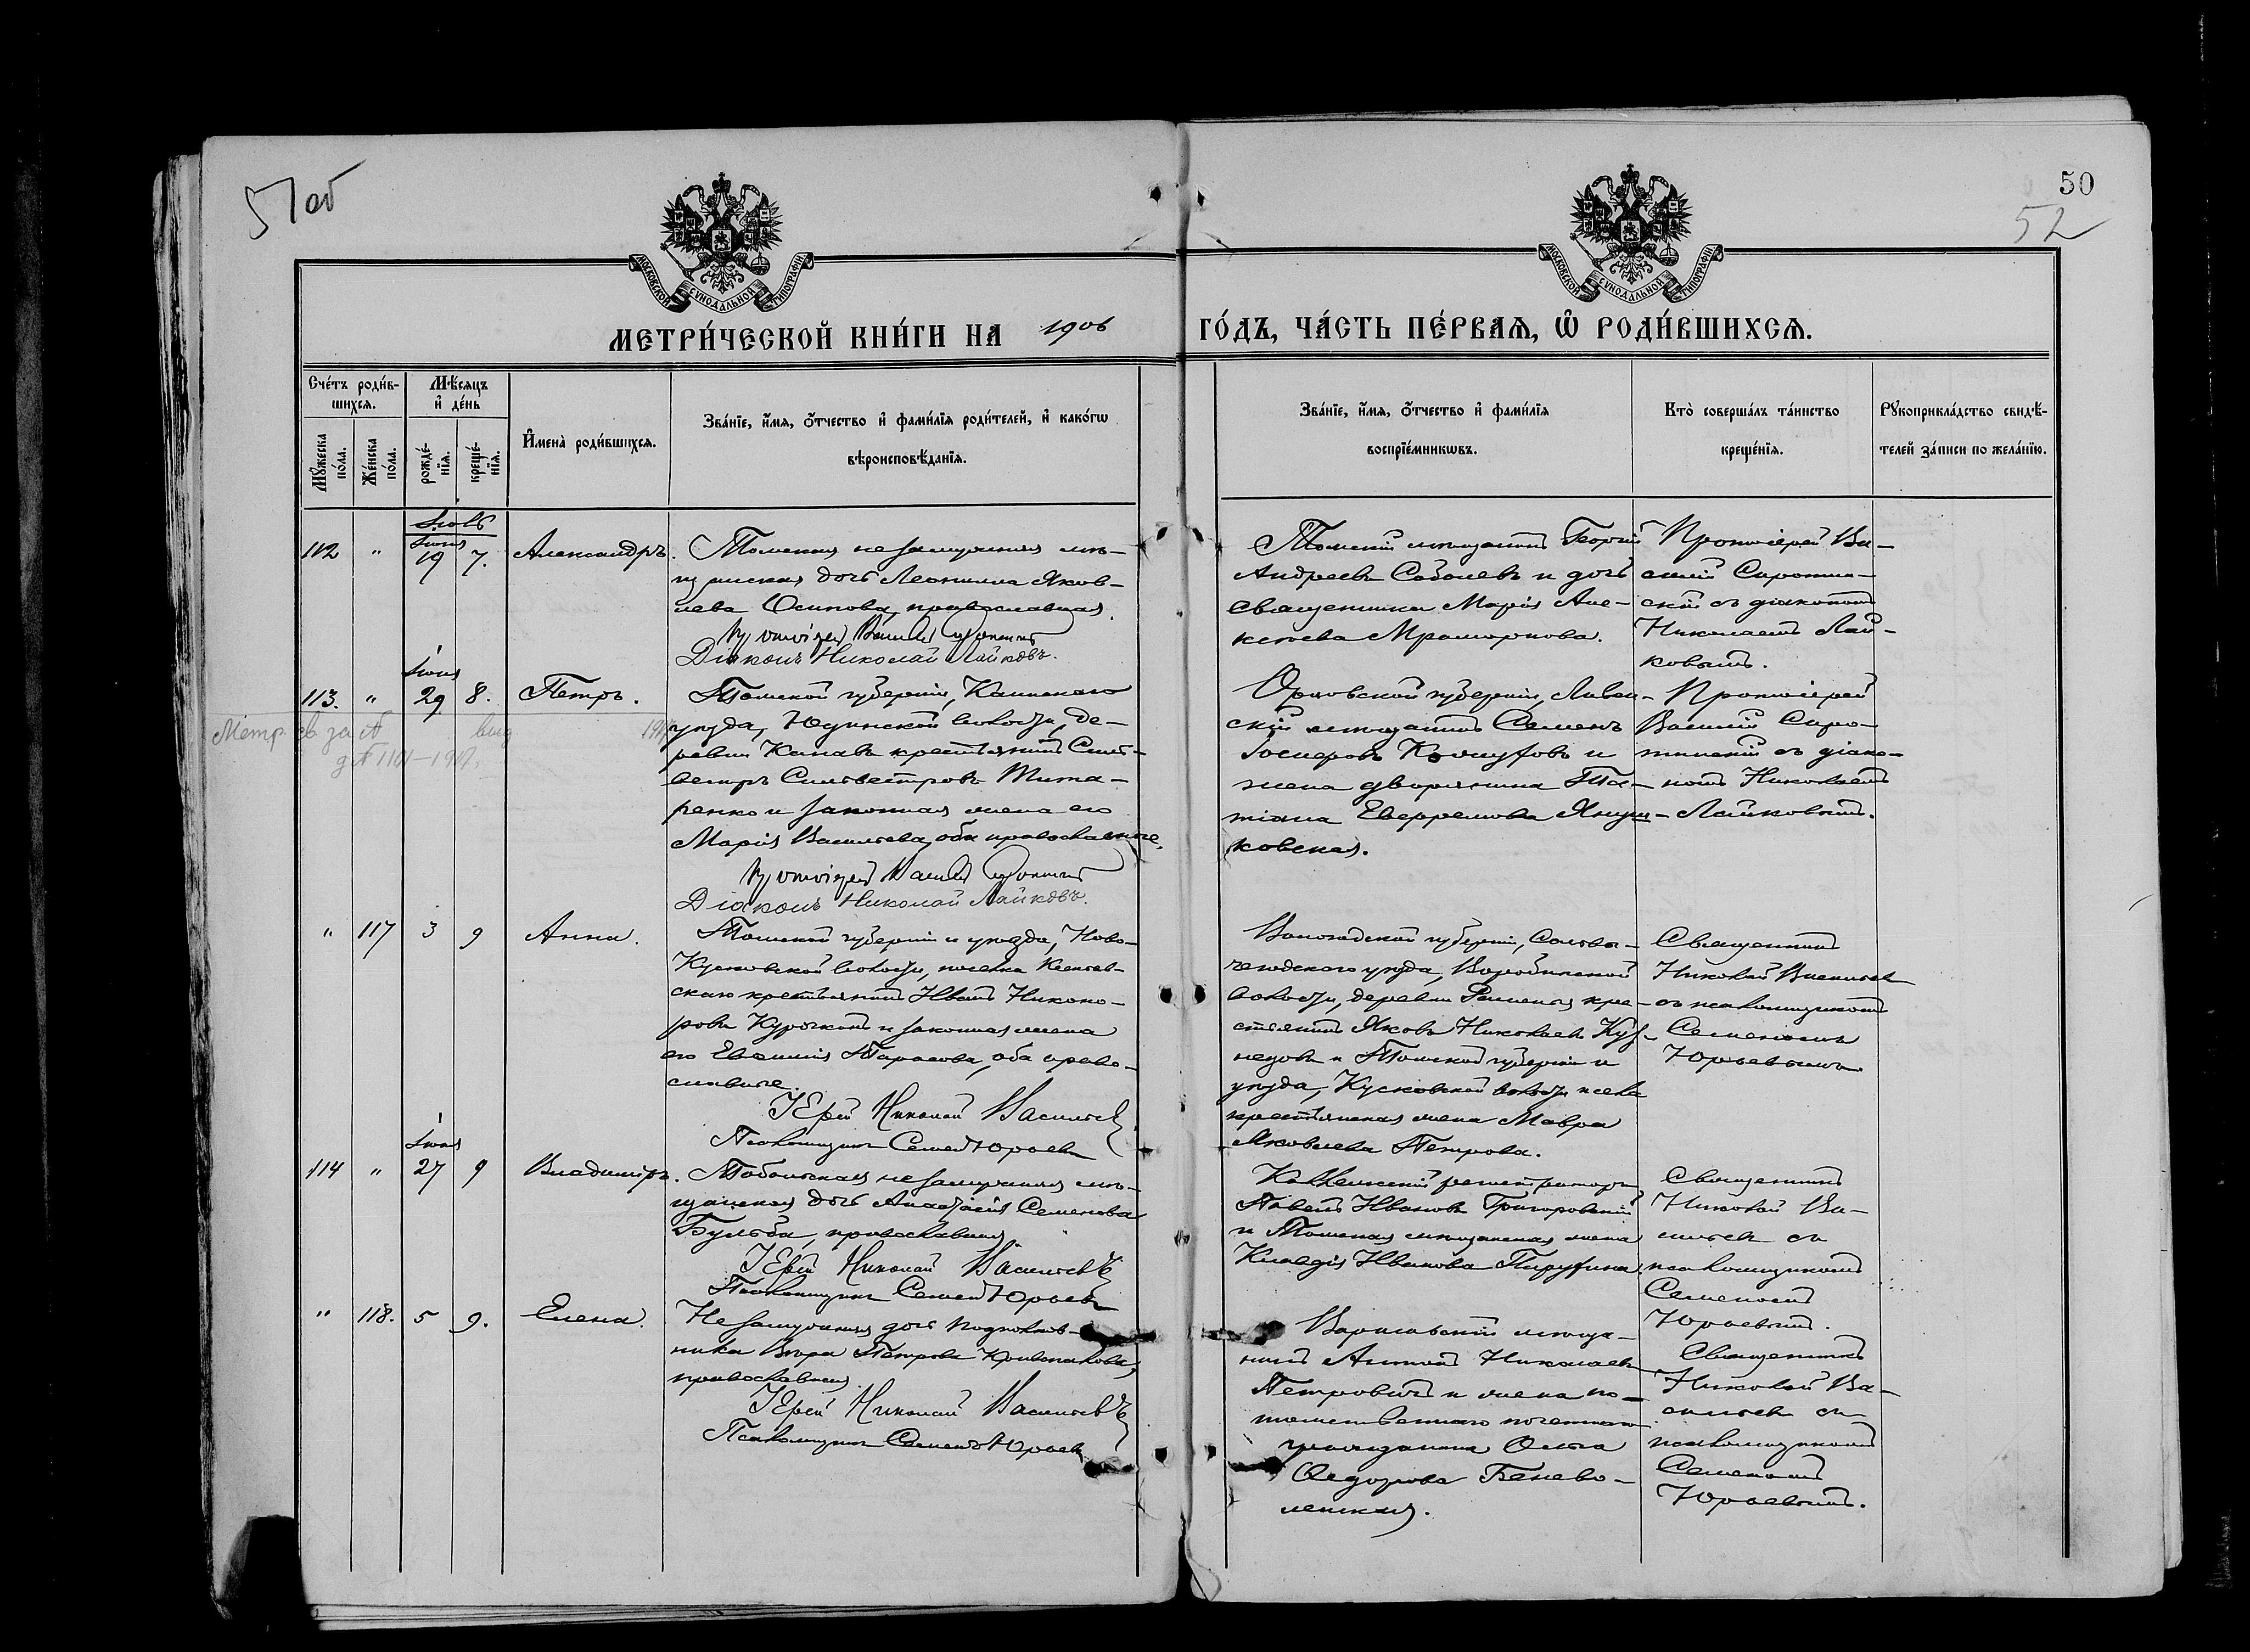 51 об
50
52
МОСКОВСКОЙ СѴНОДАЛЬНОЙ ТИПОГРАФІИ
МОСКОВСКОЙ СѴНОДАЛЬНОЙ ТИПОГРАФІИ
МЕТРИ́ЧЕСКОЙ КНИ́ГИ НА 1906 ГО́ДЪ, ЧА́СТЬ ПЕ́РВАѦ, Ѿ РОДИ́ВШИХСѦ.
Сче́тъ роди́в-
шихсѧ.
Мѣ́сѧцъ
и҆ де́нь
Мꙋ́жеска
по́ла.
Же́нска
по́ла.
рожде́-
нїѧ.
креще́-
нїѧ.
И҆мена̀ роди́вшихсѧ.
Зва́нїе, и҆́мѧ, о҆́тчество и҆ фами́лїѧ роди́телей, и҆ како́гѡ
вѣроисповѣ́данїѧ.
Зва́нїе, и҆́мѧ, о҆́тчество и҆ фами́лїѧ
воспрїе́мникѡвъ.
Кто̀ соверша́лъ та́инство
креще́нїѧ.
Рꙋкоприкла́дство свидѣ́-
телей за́писи по жела́нїю.
Іюль
Іюня
112 " 19 7. Александръ.
Томская незамужняя мѣ-
щанская дочь Леонилла Яков-
лева Осипова, православная.
Протоіерей Василій Сиротинскій
Діаконъ Николай Лайковъ.
Томскій мѣщанинъ Георгій
Андреевъ Соболевъ и дочь
священника Марія Але-
ксѣева Мраморнова.
Протоіерей Ва-
силій Сиротин-
скій съ діакономъ
Николаемъ Лай-
ковымъ.
Іюня
113. " 29 8. Петръ.
Метр. св. за №
выд
д № 1101-1917.
Томской губерніи, Каинскаго
уѣзда, Юдинской волости, де-
ревни Качавъ крестьянинъ Силь-
вестръ Сильвестровъ Тита-
ренко и законная жена его
Марія Васильева, оба православные.
Протоіерей Василій Сиротинскій
Діаконъ Николай Лайковъ.
Орловской губерніи, Ливен-
скій мѣщанинъ Семенъ
жена дворянина Та-
тіана Евфремова Януш-
ковская.
Протоіерей
Василій Сиро-
тинскій съ діако-
номъ Николаемъ
Лайковымъ.
" 117 3 9 Анна.
Томской губерніи и уѣзда, Ново-
Кусковской волости, поселка
скаго крестьянинъ Иванъ Никоно-
ровъ Курочкинъ и законная жена
его Евфимія Тарасова, оба право-
славные.
Іерей Николай Васильевъ
Псаломщикъ Семенъ Юрьевъ
Вологодской губерніи, Сольвы-
чегодскаго уѣзда,
волости, деревни Раменья кре-
стьянинъ Яковъ Николаевъ Куз-
нецовъ и Томской губерніи и
уѣзда, Кусковской волости и села
крестьянская жена Мавра
Яковлева Петрова.
Священникъ
Николай Васильевъ
съ псаломщикомъ
Семеномъ
Юрьевымъ.
Іюня
114 " 27 9 Владиміръ.
Тобольская незамужняя мѣ-
щанская дочь Анастасія Семенова
Бульба, православная.
Іерей Николай Васильевъ
Псаломщикъ Семенъ Юрьевъ
Коллежскій регистраторъ
Павелъ Ивановъ Григоровскій
и Томская мѣщанская жена
Клавдія Иванова
Священникъ
Николай Ва-
сильевъ съ
псаломщикомъ
Семеномъ
Юрьевымъ.
" 118. 5 9. Елена.
Незамужняя дочь подполков-
ника Вѣра Петрова
православная.
Іерей Николай Васильевъ
Псаломщикъ Семенъ Юрьевъ
Варшавскій мѣща-
нинъ Антонъ Николаевъ
Петровичъ и жена по-
томственнаго почетнаго
гражданина Ольга
Ѳедорова Бенево-
ленская.
Священникъ
Николай Ва-
сильевъ съ
псаломщикомъ
Семеномъ
Юрьевымъ.